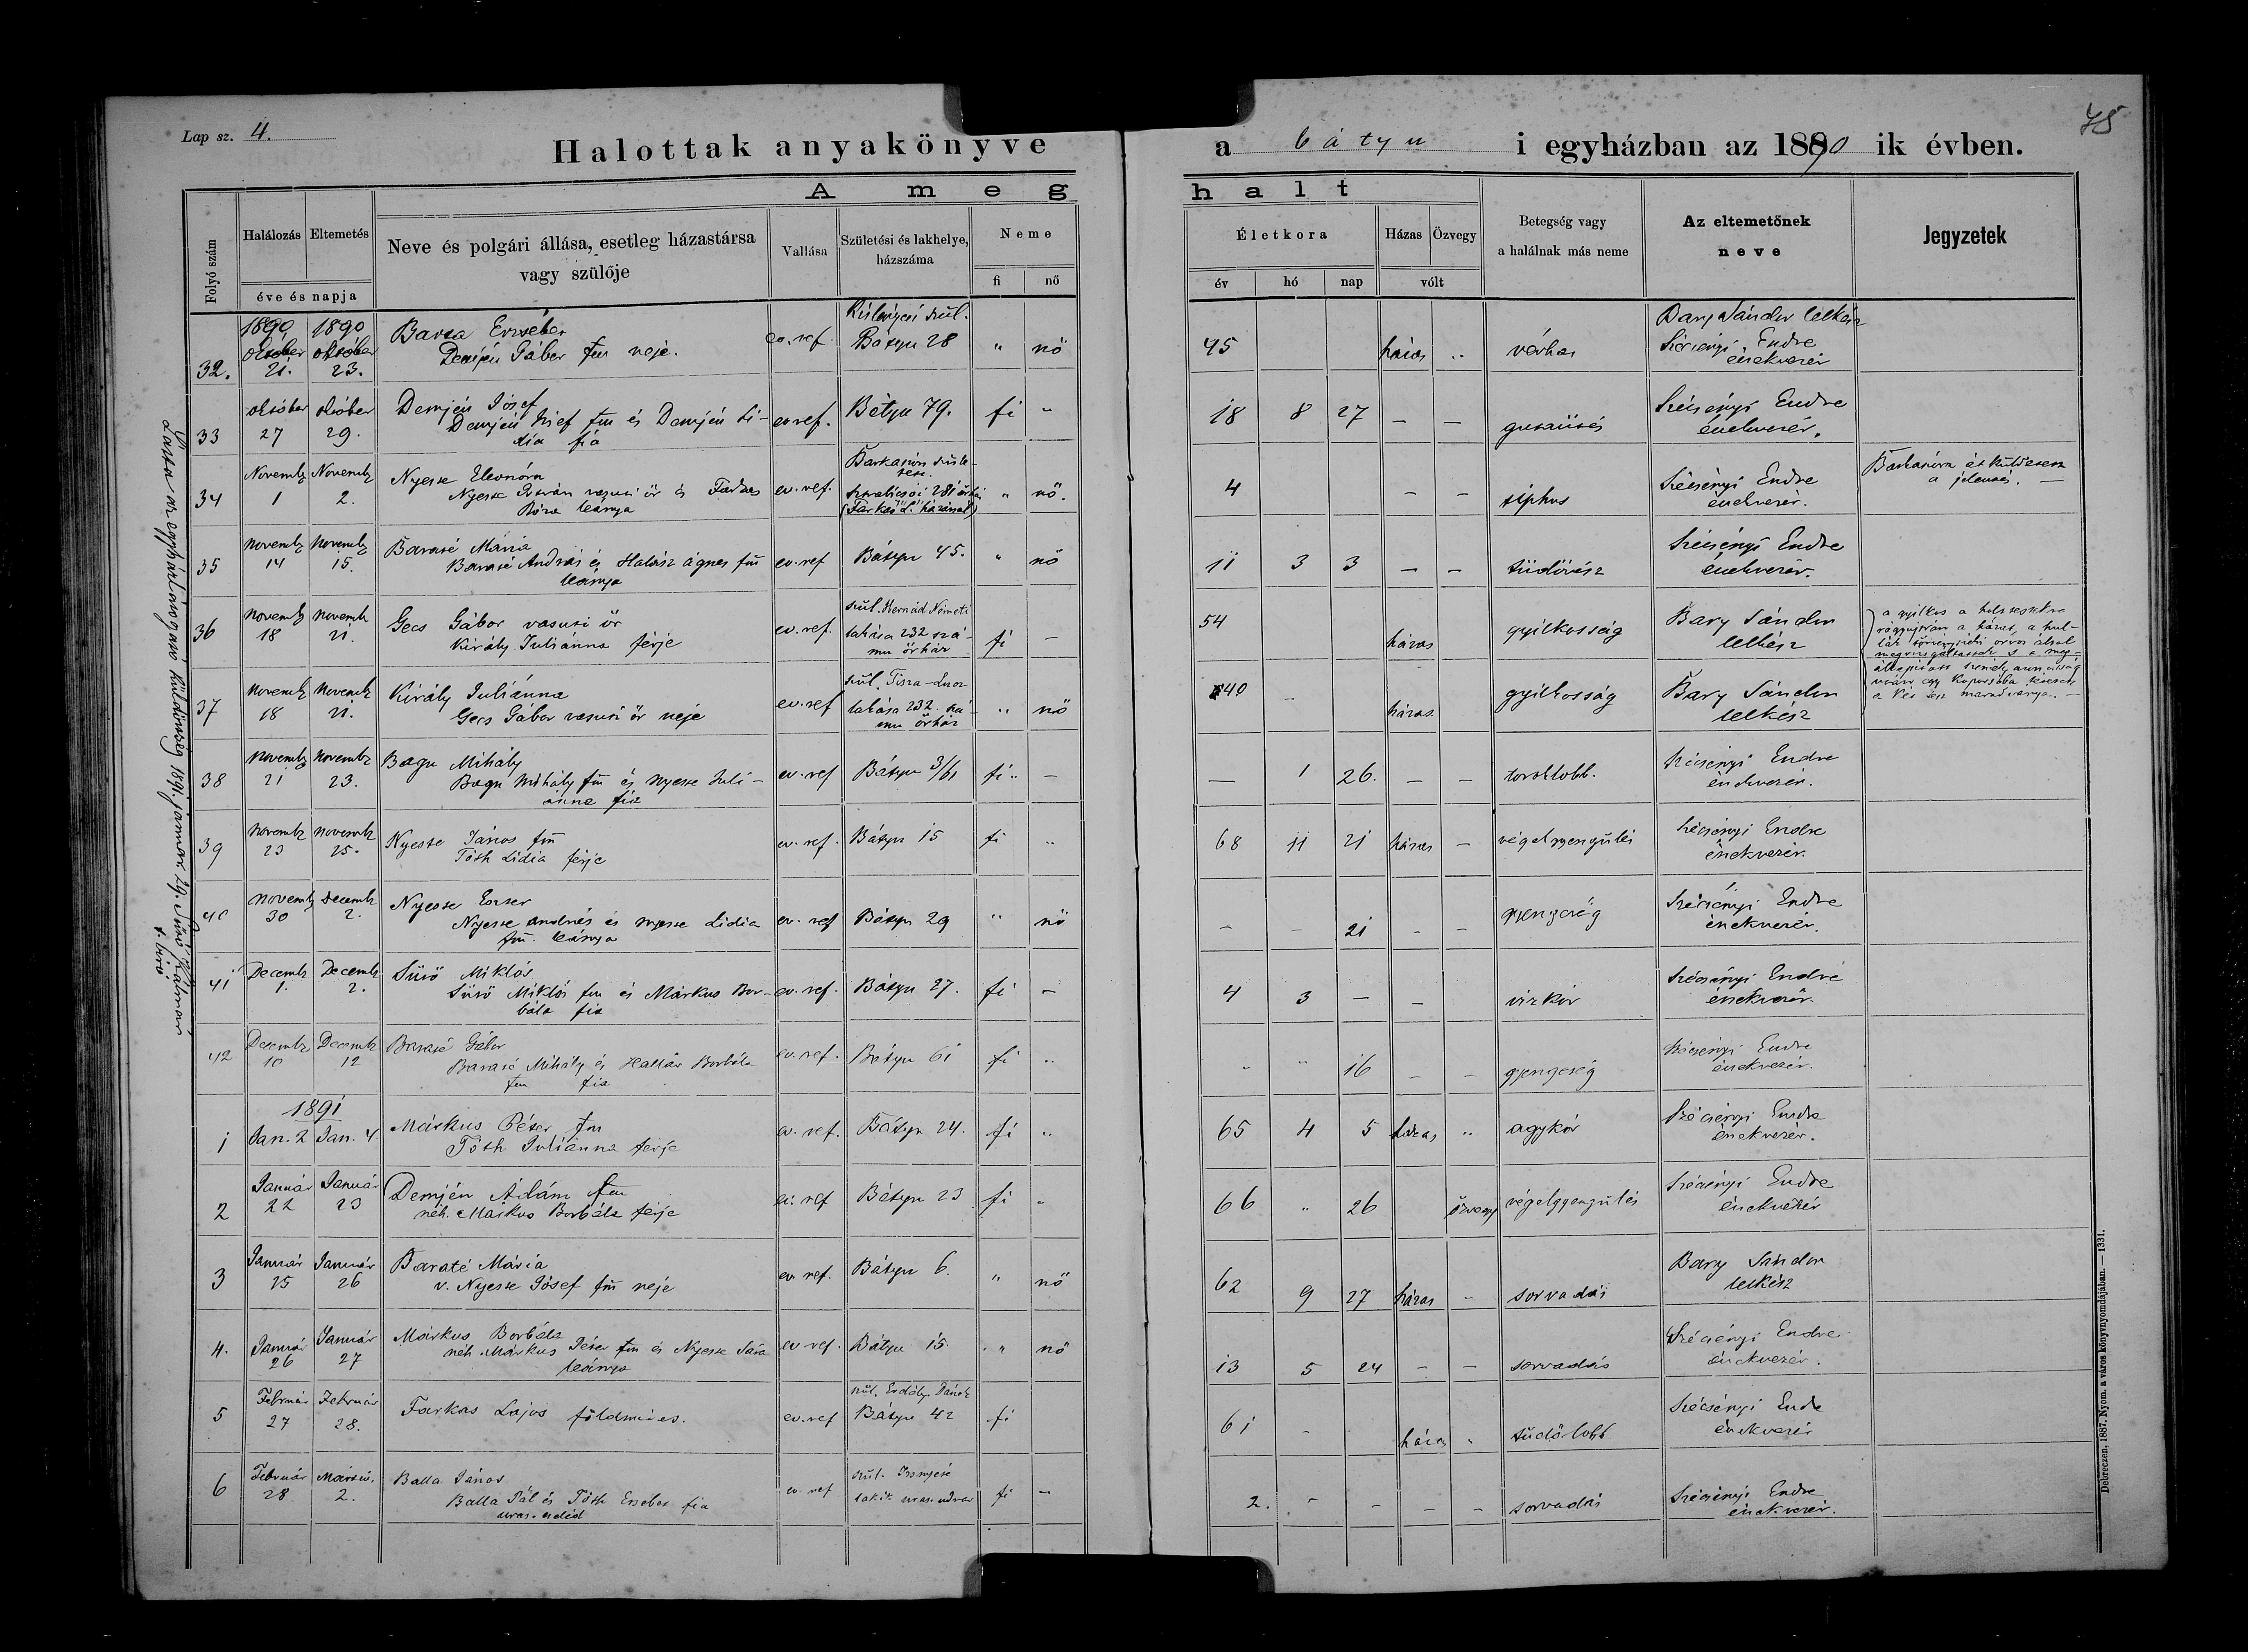 Lap sz. 4.
75
Halottak anyakönyve
a bátyu i egyházban az 1890 ik évben.
A meghalt
Folyó szám
Halálozás Eltemetés
éve és napja
Neve és polgári állása, esetleg házastársa
vagy szülője
Vallása
Születési és lakhelye,
házszáma
Neme
fi nő
Életkora
év hó nap
Házas Özvegy
vólt
Betegség vagy
a halálnak más neme
Az eltemetőnek
neve
Jegyzetek
32. 1890 október 21. 1890 október 23.
Demjén Gáber fm neje. ev. ref. Bátyu 28 " nő 45 házas "
Bary Sándor lelkész
Szécsényi Endre
énekvezér
33 október 27 október 29. Demjén Jósef
Demjén Jósef fm és Demjén Li-
dia fia
ev. ref. Bátyu 79. fi " 18 8 27 — — gutaütés
Szécsényi Endre
énekvezér.
34 Novemb 1 Novemb 2. Nyeste Eleonóra
Nyeste István vasuti őr és Farkas
leánya
ev. ref. " nő. 4 — — tiphus
Szécsényi Endre
énekvezér.
a jelentés. —
35 Novemb 14 Novemb 15. Baráté Mária
Baráté András és Halász Ágnes fm
leánya
ev. ref Bátyu 45. " nő 11 3 3 — — tüdővész
Szécsényi Endre
énekvezér.
36 Novemb 18 Novemb 21. Gecs Gábor vasuti őr
Király Juliánna férje
ev. ref. szül. Hernád Németi
lakása 232 szá-
mu őrház
fi — 54 házas gyilkosság
Bary Sándor
lelkész
37 Novemb 18 Novemb 21. Király Juliánna
Gecs Gábor vasuti őr neje
ev. ref
lakása 232 szá-
mu őrház
" nő 40 — házas gyilkosság
Bary Sándor
lelkész
a gyilkos a holttestekre
38 Novemb 21 Novemb 23. Bagu Mihály
Bagu Mihály fm és Nyeste Juli-
ánna fia
ev. ref Bátyu 3/61 fi " — — 1 26. — — toroklobb.
Szécsényi Endre
énekvezér.
39 Novemb 23 Novemb 25. Nyeste János fm
Tóth Lidia férje
ev. ref. Bátyu 15 fi " 68 11 21 házas — végelgyengülés
Szécsényi Endre
énekvezér.
40 Novemb 30 Decemb 2. Nyeste Eszter
Nyeste András és Nyeste Lidia
fm. leánya
ev. ref Bátyu 29 " nő - - 21 - - gyengeség
Szécsényi Endre
énekvezér.
41 Decemb 1. Decemb 2. Sütő Miklós
Sütő Miklós fm és Márkus Bor-
bála fia
ev. ref. Bátyu 27. fi — 4 3 — — vizkór
Szécsényi Endre
énekvezér.
42 Decemb 10 Decemb 12 Baráté Gábor
Baráté Mihály és Borbála
fm fia
ev. ref. Bátyu 61 fi " " " 16 — — gyengeség
Szécsényi Endre
énekvezér.
1891
1 Jan. 2 Jan. 4. Márkus Péter fm
Tóth Juliánna férje
ev. ref. Bátyu 24. fi " 65 4 5 házas " agykór
Szécsényi Endre
énekvezér.
2 Január 22 Január 23 Demjén Ádám fm
néh. Márkus Borbála férje
ev. ref Bátyu 23 fi " 66 " 26 özvegy végelgyengülés
Szécsényi Endre
énekvezér
3 Január 25 Január 26 Baraté Mária
v. Nyeste Jósef fm neje
ev. ref. Bátyu 6. " nő 62 9 27 házas " sorvadás
Bary Sándor
lelkész
4. Január 26 Január 27 Márkus Borbála
néh. Márkus Péter fm és Nyeste Sára
leánya
ev. ref. Bátyu 15. " nő 13 5 24 — — sorvadás
Szécsényi Endre
énekvezér.
5 Február 27 Február 28. Farkas Lajos földmives.
ev. ref Bátyu 42 fi 61 - házas " tüdőlobb
Szécsényi Endre
énekvezér
6 Február 28 2. Balla János
Balla Pál és Tóth Erzsébet fia
ev. ref fi — 2. - - - - sorvadás
Szécsényi Endre
énekvezér.
Debreczen, 1887. Nyom. a város könyvnyomdájában. — 1331.